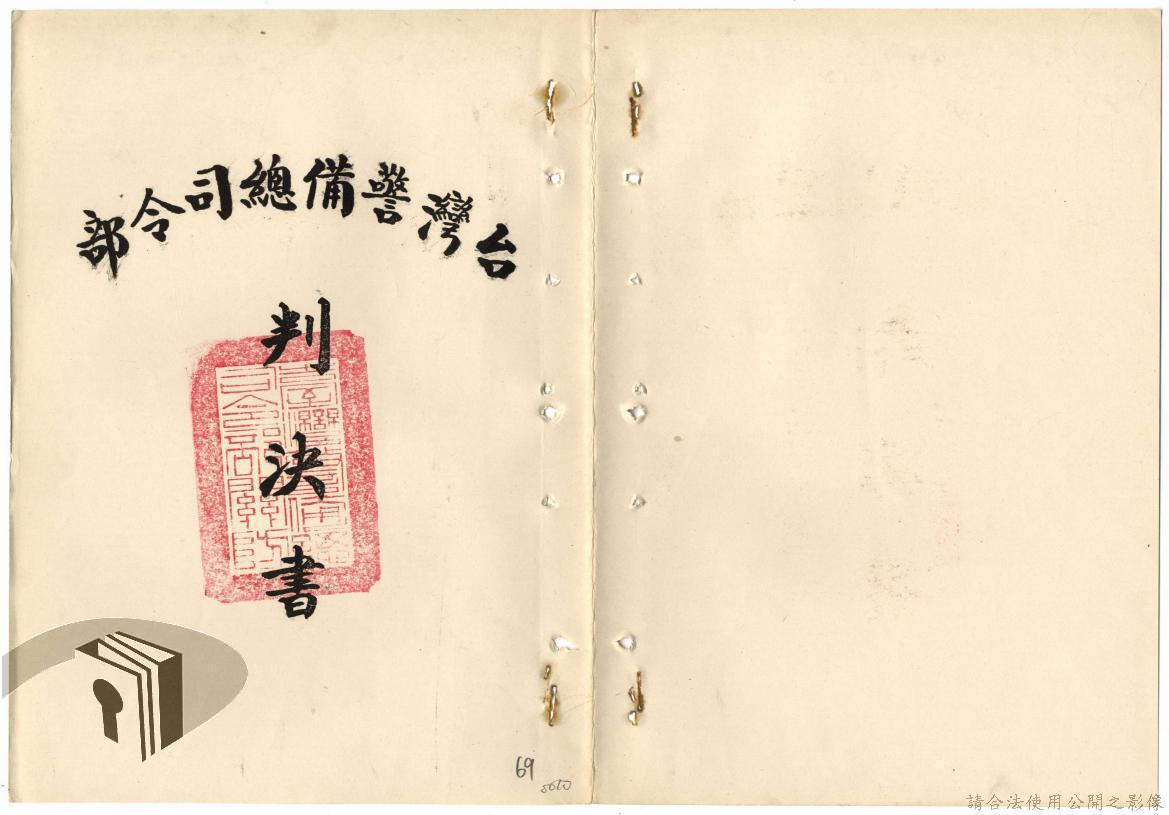 台灣警備總司令部
判決書
69
請合法使用公開之影像